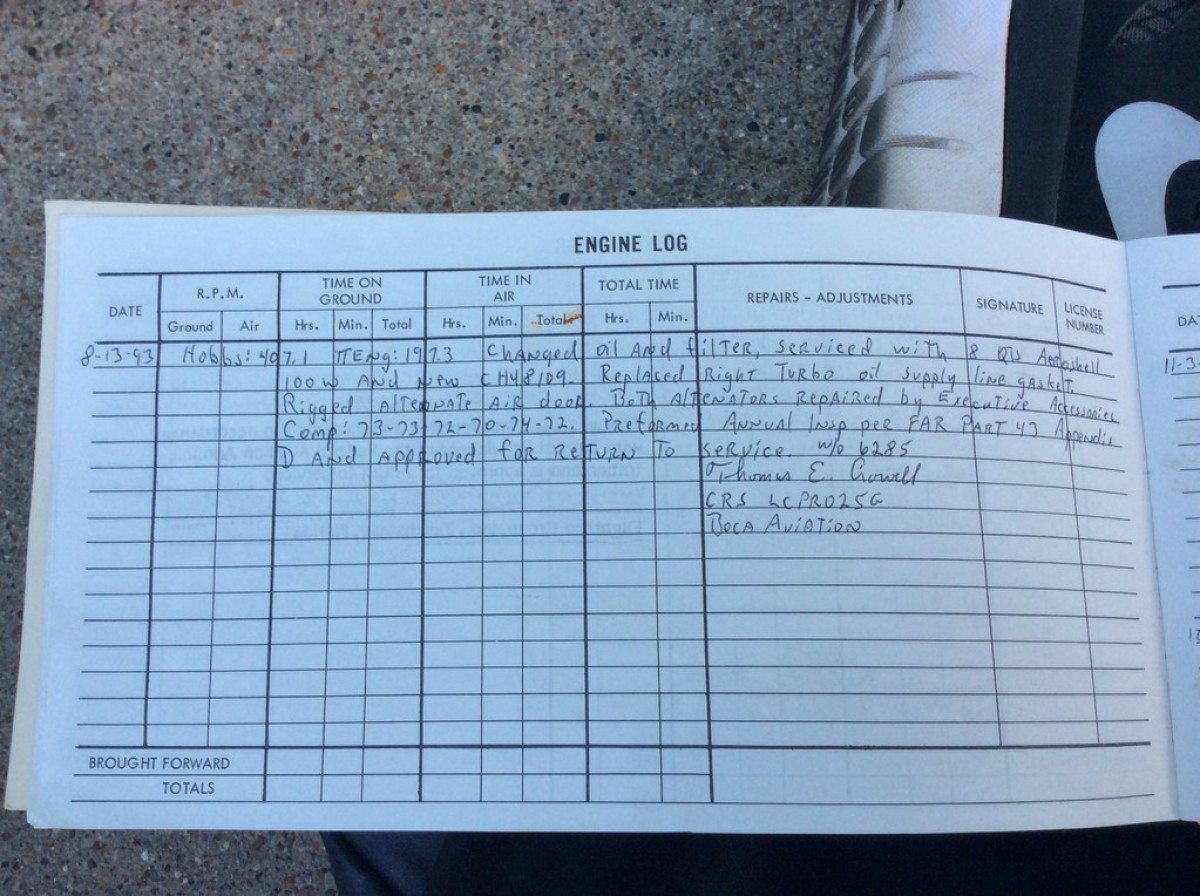 ENGINE LOG
DATE R.P.M. TIME ON GROUND TIME IN AIR TOTAL TIME REPAIRS – ADJUSTMENTS SIGNATURE LICENSE NUMBER
Ground Air Hrs. Min. Total Hrs. Min. Total Hrs. Min.
8-13-93 Hobbs: 407.1 TTEng: 197.3 Changed oil And filter, serviced with 8 Qts Aeroshell
100w And New CH48109. Replaced Right Turbo oil supply line gasket.
Rigged Alternate Air door. Both Altenators Repaired by Executive Accessories
Comp: 73-73-72-70-74-72. Preformed Annual Insp per FAR Part 43 Appendis
D And Approved for Return To service. w/o 6285
Thomas E. Crowell
CRS
Boca Aviation
BROUGHT FORWARD
TOTALS
DAT
11-3-